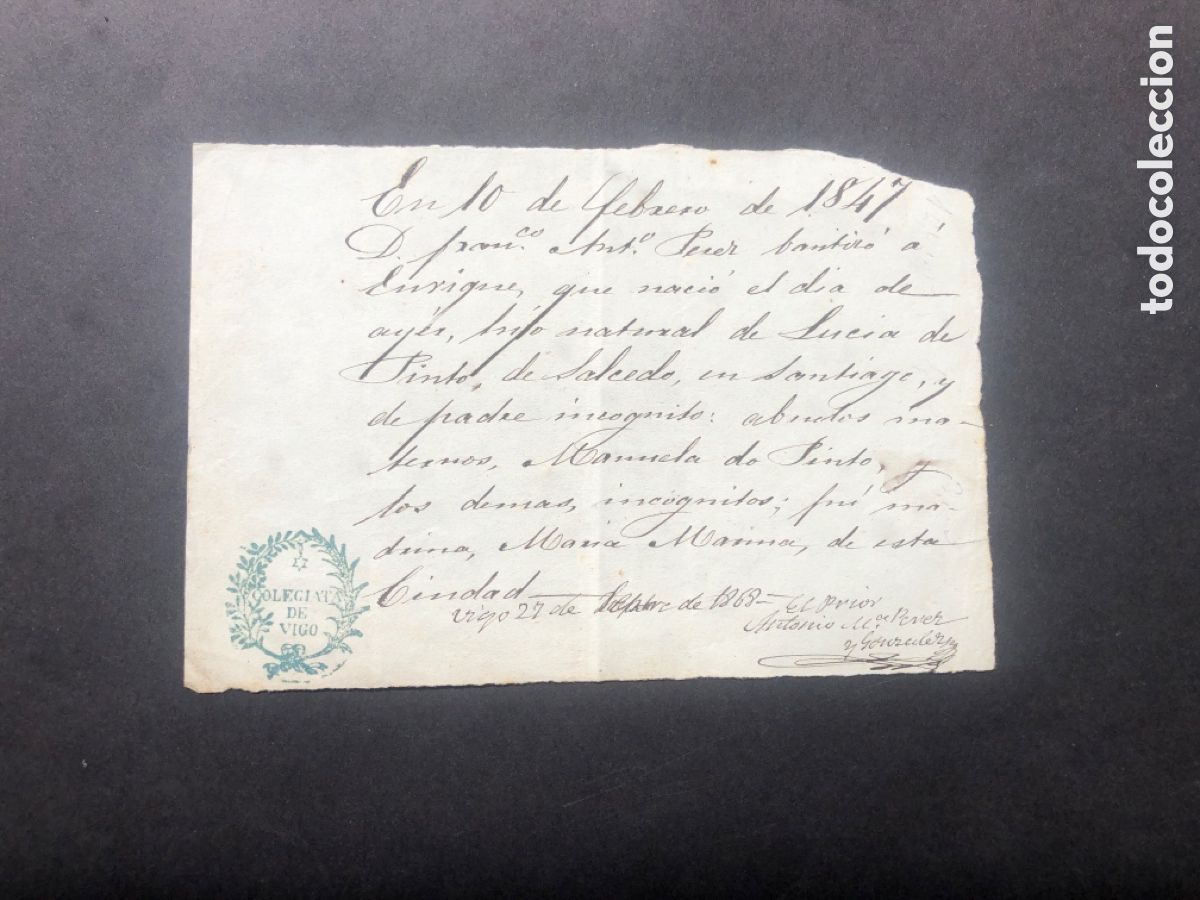 En 10 de febrero de 1847
D. Fran.co Ant.o Perez bautizó á
Enrique, que nació el dia de
ayer, hijo natural de Lucia de
Pinto, de Salcedo, en Santiago, y
de padre incognito: abuelos ma-
ternos, Manuela do Pinto, y
los demas, incognitos; fué ma-
drina, Maria Marina, de esta
Ciudad
Vigo 27 de de 1868
El Prior
Antonio M.a Perez
y Gonzalez
COLEGIATA
DE
VIGO
todocoleccion